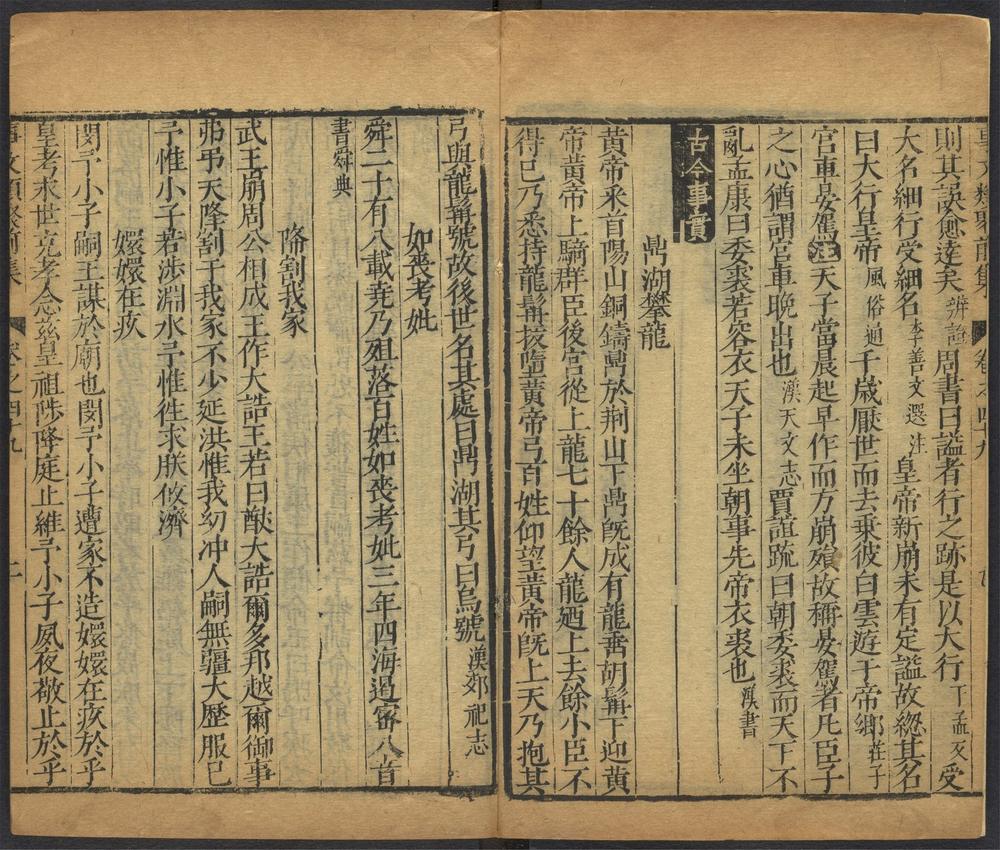 事文類聚前集 卷之四十九
則其誤愈遠矣辨證周書曰謚者行之跡是以大行下孟反受
大名細行受細名李善文選注皇帝新崩未有定謚故緫其名
曰大行皇帝風俗通千歲厭世而去乗彼白雲遊于帝鄉莊子
宮車晏駕注天子當晨起早作而方崩殞故稱晏駕者凡臣子
之心猶謂宮車晚出也漢天文志賈誼䟽曰朝委裘而天下不
亂孟康曰委裘若容衣天子未坐朝事先帝衣裘也漢書
古今事實
鼎湖攀龍
黃帝采首陽山銅鑄鼎於荆山下鼎旣成有龍垂胡髯下迎黃
帝黃帝上騎群臣後宮從上龍七十餘人龍廼上去餘小臣不
得已乃悉持龍髯拔墮黃帝弓百姓仰望黃帝旣上天乃抱其
弓與龍髯號故後世名其處曰鼎湖其弓曰烏號漢郊祀志
如喪考妣
舜二十有八載堯乃殂落百姓如喪考妣三年四海遏密八音
書舜典
降割我家
武王崩周公相成王作大誥王若曰猷大誥爾多邦越爾御事
弗弔天降割于我家不少延洪惟我幼冲人嗣無疆大歷服已
予惟小子若涉淵水予惟徃求朕攸濟
嬛嬛在疚
閔予小子嗣王謀於廟也閔予小子遭家不造嬛嬛在疚於乎
皇考永世克孝念兹皇祖陟降庭止維予小子夙夜敬止於乎
事文類聚前集 卷之四十九 二